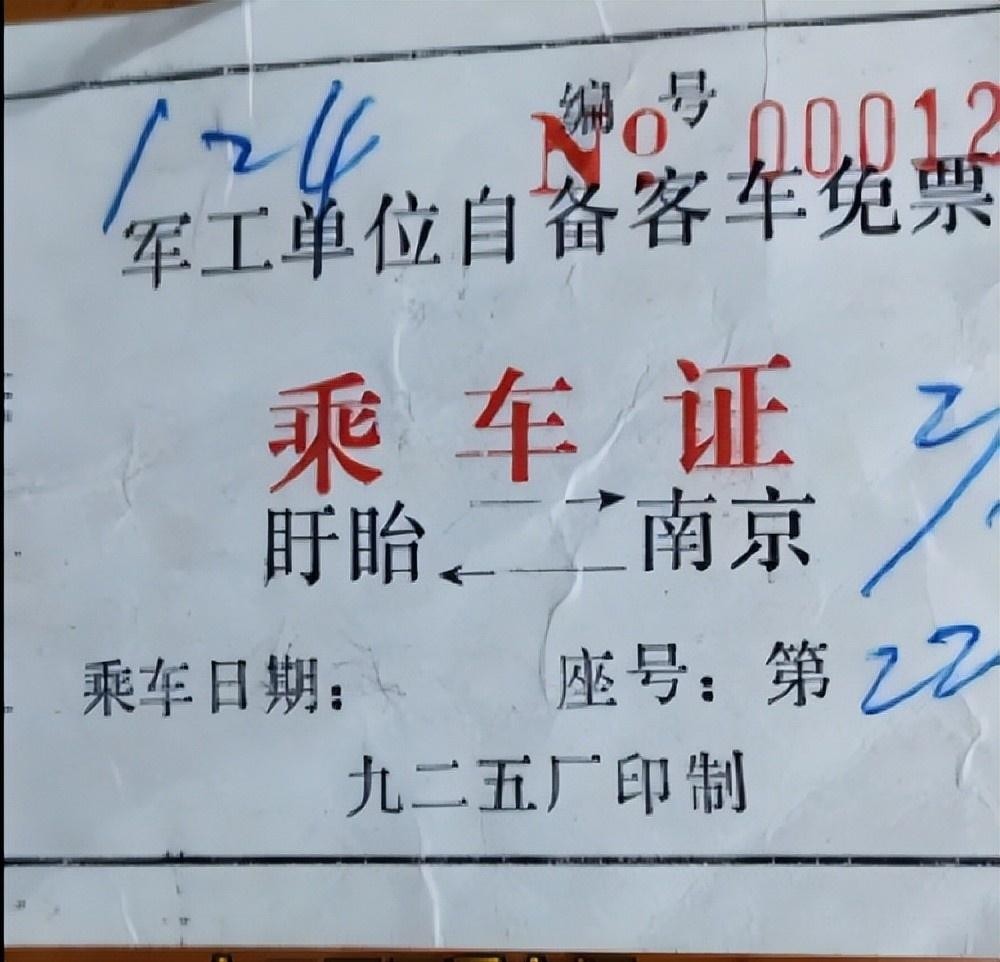 124
编号
№ 00012
军工单位自备客车免票
乘车证
盱眙 ⇄ 南京
乘车日期: 座号: 第 22
九二五厂印制